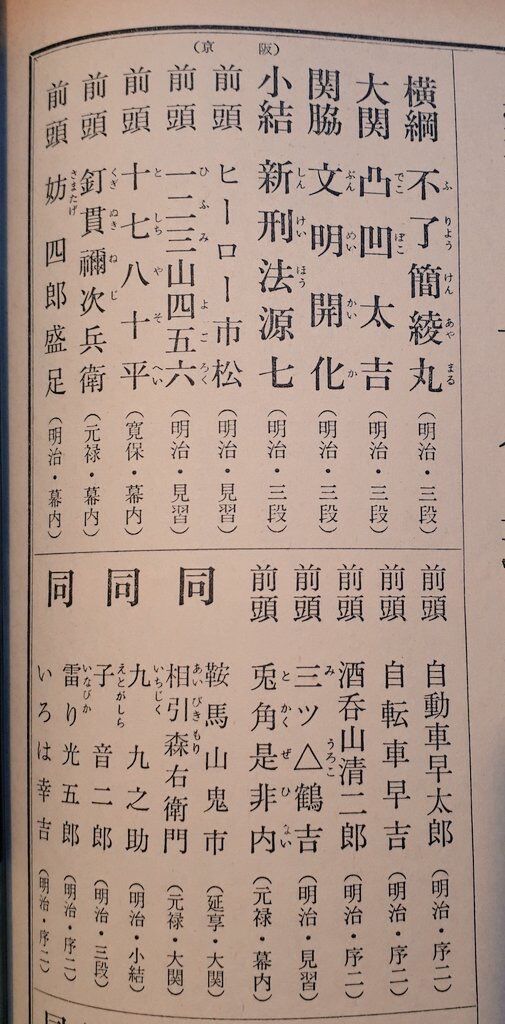 （京阪）
横綱 不了簡綾丸（明治・三段）
大関 凸凹太吉（明治・三段）
関脇 文明開化（明治・三段）
小結 新刑法源七（明治・三段）
前頭 ヒーロー市松（明治・見習）
前頭 一二三山四五六（明治・見習）
前頭 十七八十平（寛保・幕内）
前頭 釘貫禰次兵衛（元禄・幕内）
前頭 妨四郎盛足（明治・幕内）
前頭 自動車早太郎（明治・序二）
前頭 自転車早吉（明治・序二）
前頭 酒呑山清二郎（明治・序二）
前頭 三ツ△鶴吉（明治・見習）
前頭 兎角是非内（元禄・幕内）
同 鞍馬山鬼市（延享・大関）
相引森右衛門（元禄・大関）
同 九九之助（明治・小結）
子音二郎（明治・三段）
同 雷り光五郎（明治・序二）
いろは幸吉（明治・序二）
同